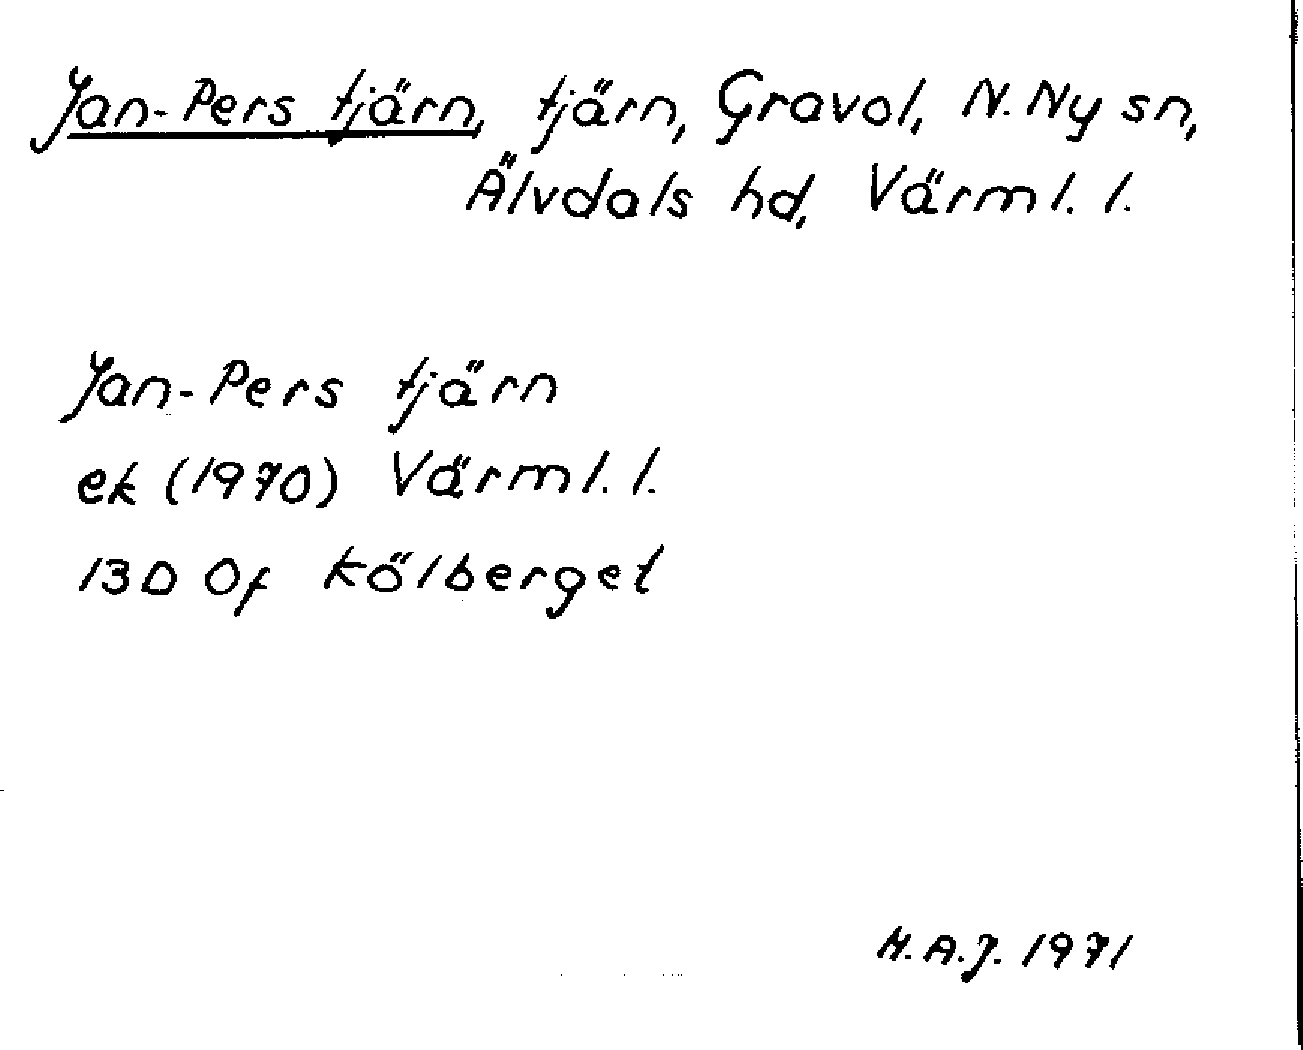 Jan-Pers tjärn, tjärn, Gravol, N. Ny sn,
Älvdals hd, Värml. l.
Jan-Pers tjärn
ek (1970) Värml. l.
13D 0f Kölberget
M.A.J. 1971